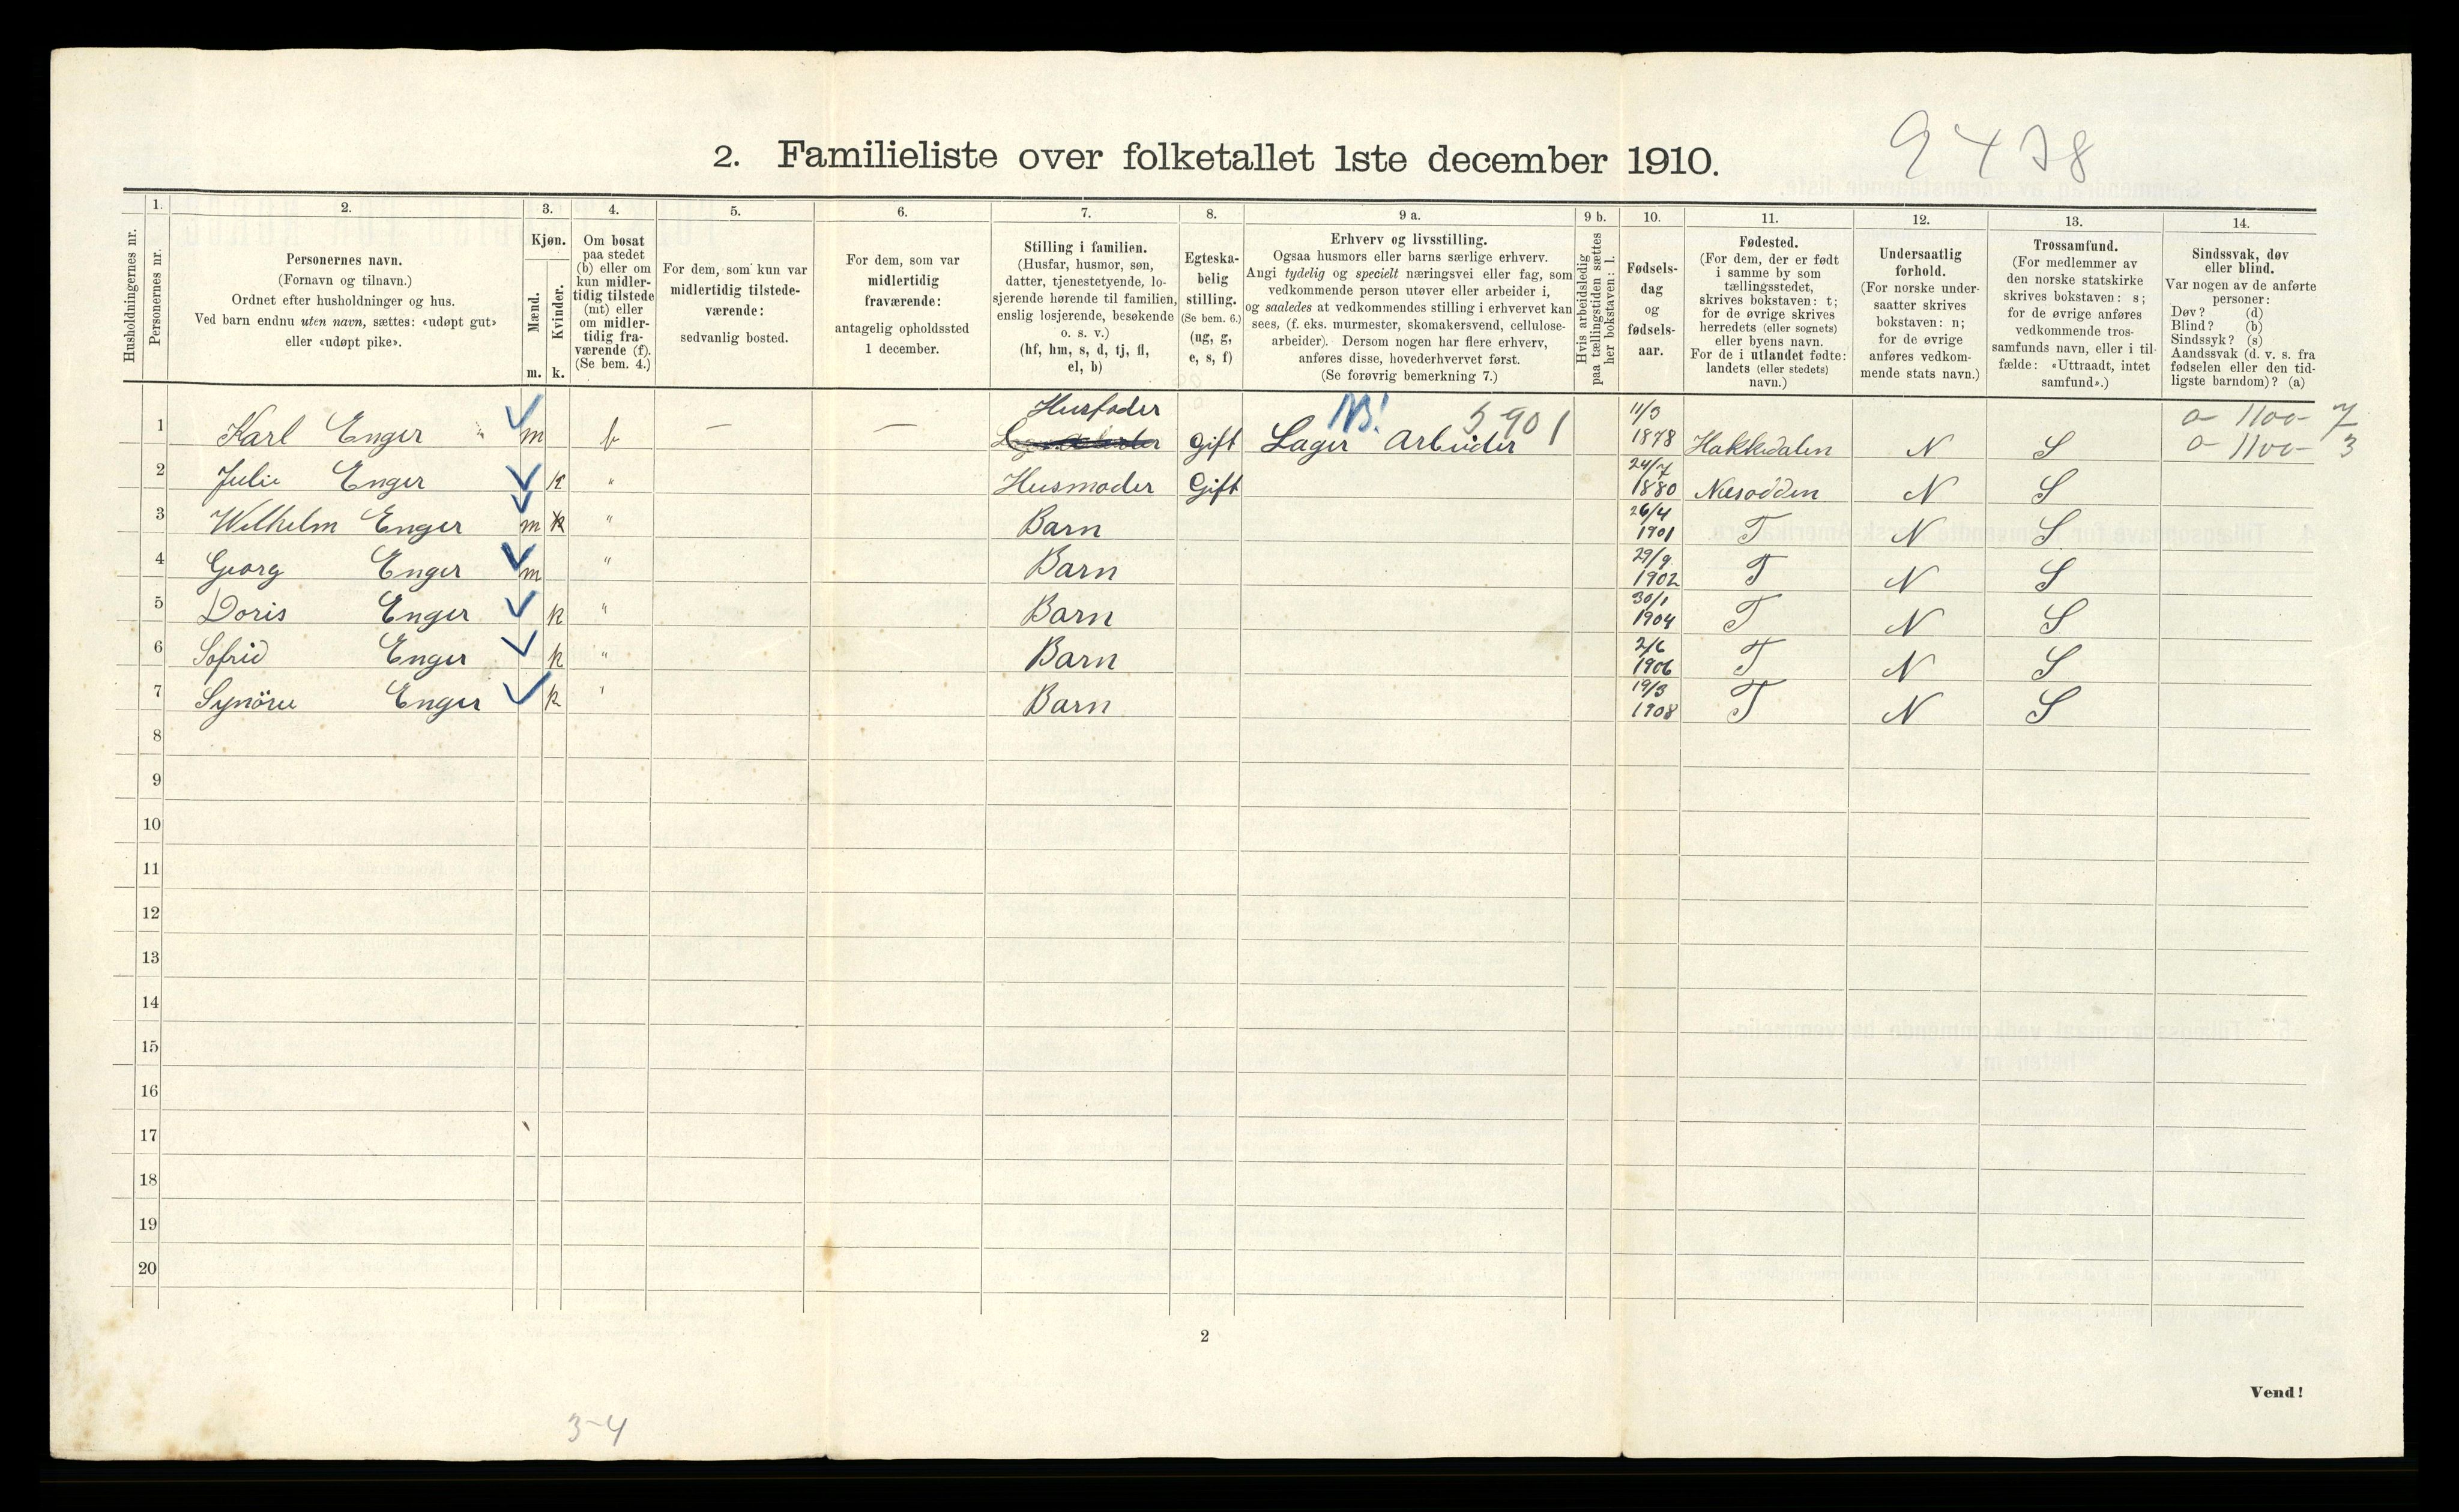 9478
2. Familieliste over folketallet 1ste december 1910.
Husholdningernes nr.
1.
Personernes nr.
2.
Personernes navn.
(Fornavn og tilnavn.)
Ordnet efter husholdninger og hus.
Ved barn endnu uten navn, sættes: «udøpt gut»
eller «udøpt pike».
3.
Kjøn.
Mænd.
Kvinder.
m. k.
4.
Om bosat
paa stedet
(b) eller om
kun midler-
tidig tilstede
(mt) eller
om midler-
tidig fra-
værende (f).
(Se bem. 4.)
5.
For dem, som kun var
midlertidig tilstede-
værende:
sedvanlig bosted.
6.
For dem, som var
midlertidig
fraværende:
antagelig opholdssted
1 december.
7.
Stilling i familien.
(Husfar, husmor, søn,
datter, tjenestetyende, lo-
sjerende hørende til familien,
enslig losjerende, besøkende
o. s. v.)
(hf, hm, s, d, tj, fl,
el, b)
8.
Egteska-
belig
stilling.
(Se bem. 6.)
(ug, g,
e, s, f)
9 a.
Erhverv og livsstilling.
Ogsaa husmors eller barns særlige erhverv.
Angi tydelig og specielt næringsvei eller fag, som
vedkommende person utøver eller arbeider i,
og saaledes at vedkommendes stilling i erhvervet kan
sees, (f. eks. murmester, skomakersvend, cellulose-
arbeider). Dersom nogen har flere erhverv,
anføres disse, hovederhvervet først.
(Se forøvrig bemerkning 7.)
9 b.
Hvis arbeidsledig
paa tællingstiden sættes
her bokstaven: l.
10.
Fødsels-
dag
og
fødsels-
aar.
11.
Fødested.
(For dem, der er født
i samme by som
tællingsstedet,
skrives bokstaven: t;
for de øvrige skrives
herredets (eller sognets)
eller byens navn.
For de i utlandet fødte:
landets (eller stedets)
navn.)
12.
Undersaatlig
forhold.
(For norske under-
saatter skrives
bokstaven: n;
for de øvrige
anføres vedkom-
mende stats navn.)
13.
Trossamfund.
(For medlemmer av
den norske statskirke
skrives bokstaven: s;
for de øvrige anføres
vedkommende tros-
samfunds navn, eller i til-
fælde: «Uttraadt, intet
samfund».)
14.
Sindssvak, døv
eller blind.
Var nogen av de anførte
personer:
Døv? (d)
Blind? (b)
Sindssyk? (s)
Aandssvak (d. v. s. fra
fødselen eller den tid-
ligste barndom)? (a)
Husfader NB! 5901 11/3 0- 1100- 7
1 Karl Enger m b — — Gift Lager Arbeider 1878 Hakkedalen N S 0- 1100- 3
24/7
2 Julie Enger k " Husmoder Gift 1880 Næsodden N S
26/4
3 Wilhelm Enger m k " Barn 1901 T N S
29/9
4 Georg Enger m " Barn 1902 T N S
30/1
5 Doris Enger k " Barn 1904 T N S
2/6
6 Sofrid Enger k " Barn 1906 T N S
19/3
7 Synöve Enger k " Barn 1908 T N S
8
9
10
11
12
13
14
15
16
17
18
19
20
2
Vend!
3-4